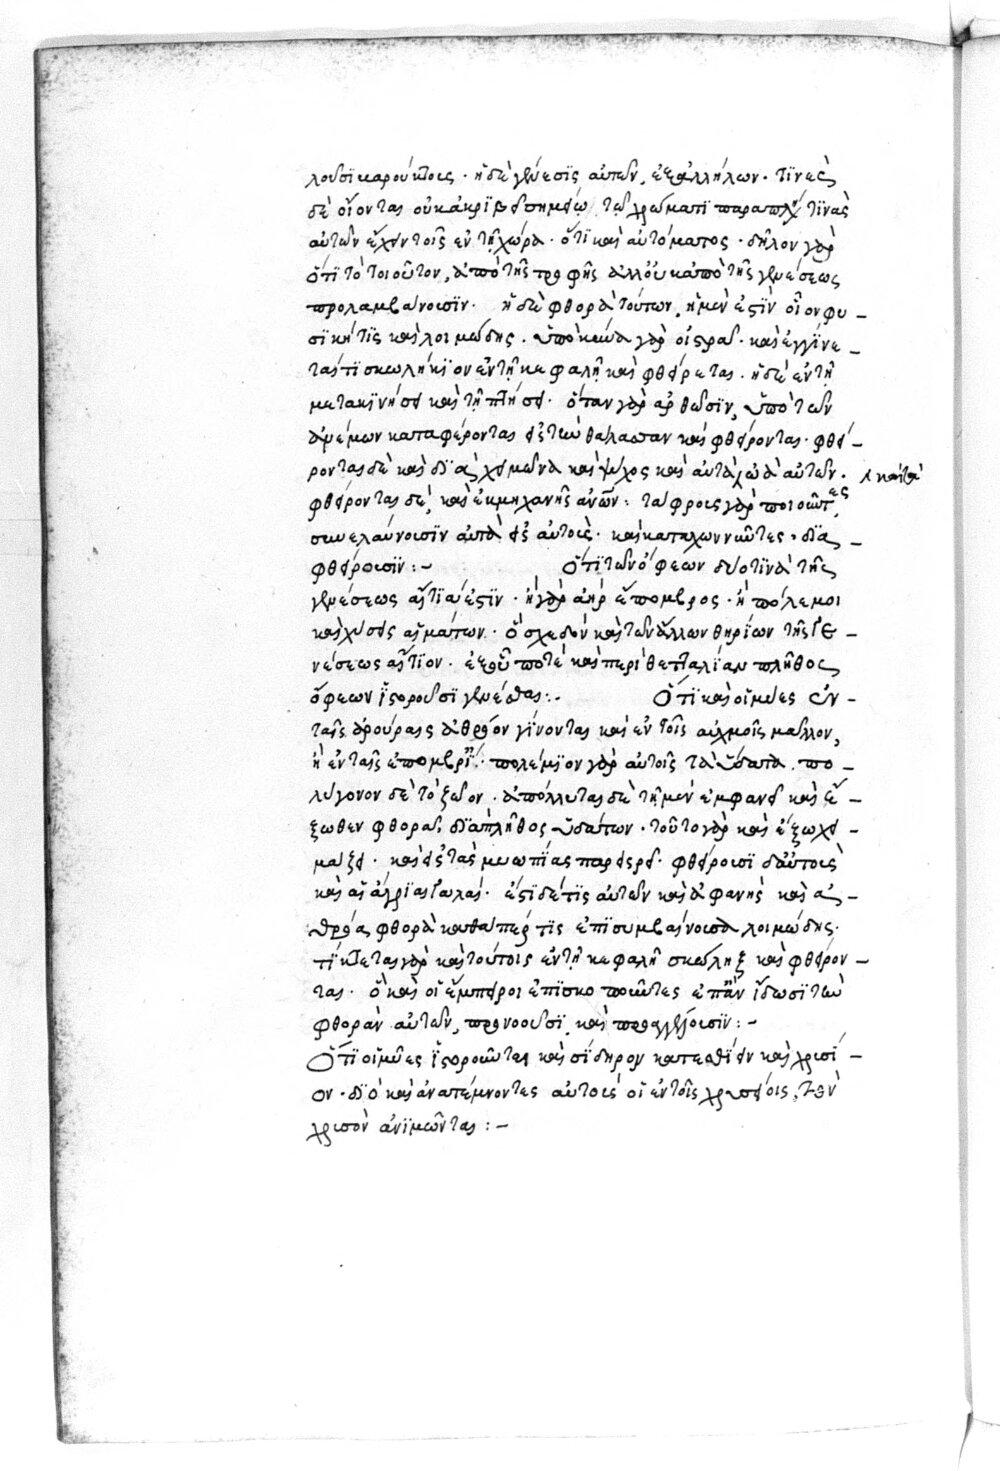 λοῦσι καρούκιοις · ἡ δὲ γένεσϊς αὐτῶν, ἐξ ἀλλήλων · τϊνὲς
δὲ οἴονται οὐκ ἀκριβεῖ σημείῳ τῷ χρώματι παραπλη τϊνὰς
αὐτῶν ἔχειν τοῖς ἐν τῇ χώρα · ὅτι καὶ αὐτόματος · δῆλον γὰρ
ὅτϊ τὸ τοιοῦτον, ἀπὸ τῆς τροφῆς ἀλλ' οὐκ ἀπὸ τῆς γενέσεως
προλαμβάνουσϊν · ἡ δὲ φθορὰ τούτων, ἡ μέν ἐστϊν οἷον φυ –
σικὴ τϊς καὶ λοιμώδης · ὑπὸ κύνα γὰρ οἰστραῖ · καὶ ἐγγίνε –
ταί τι σκωλήκϊον ἐν τῇ κεφαλῇ καὶ φθείρεται · ἡ δὲ ἐν τῇ
μετακινήσει καὶ τῇ πτήσει · ὅταν γὰρ ἀρθῶσϊν, ὑπὸ τῶν
ἀνέμων καταφέρονται εἰς τὴν θάλασσαν καὶ φθείρονται · φθεί –
ρονται δὲ καὶ δϊὰ χειμῶνα καὶ ψῦχος καὶ αὐτὰ τὰ ὠὰ αὐτῶν · καὶ τὰ
φθείρονται δὲ, καὶ ἐκ μηχανῆς ἀνων : ταφροις γὰρ ποιοῦντες
συνελαύνουσϊν αὐτὰ εἰς αὐτοὺς · καὶ καταχωννῦντες · δϊα –
φθείρουσϊν : – Ὅτϊ τῶν ὄφεων δύο τϊνὰ τῆς
γενέσεως αἴτϊά ἐστϊν · ἢ γὰρ ἀὴρ ἔπομβρος · ἢ πόλεμοι
καὶ χύσεις αἱμάτων · ὃ σχεδὸν καὶ τῶν ἄλλων θηρίων τῆς γε –
νέσεως αἴτϊον · ἐξ οὗ ποτὲ καὶ περὶ θετταλίαν πλῆθος
ὄφεων ἱστοροῦσϊ γενέσθαι : – Ὅτϊ καὶ οἱ μύες ἐν –
ταῖς ἀρούραις ἀθρόον γίνονται καὶ ἐν τοῖς αὐχμοῖς μᾶλλον,
ἢ ἐν ταῖς ἐπομβρί · πολέμϊον γὰρ αὐτοῖς τὰ ὕδατα · πο –
λύγονον δὲ τὸ ζῶον · ἀπόλλυται δὲ τῇ μὲν ἐμφανεῖ καὶ ἔ –
ξωθεν φθορᾷ, δϊὰ πλῆθος ὑδάτων · τοῦτο γὰρ καὶ ἐξωχει –
μάζει · καὶ εἰς τὰς μυωπίας παρεισρεῖ · φθείρουσϊ δ' αὐτοὺς
καὶ αἱ ἄγρϊαι γαλαῖ · ἔστϊ δέ τϊς αὐτῶν καὶ ἀφανὴς καὶ ἀ –
θρόα φθορὰ καθάπερ τϊς ἐπϊσυμβαίνουσα λοιμώδης ·
τίκτεται γὰρ καὶ τούτοις ἐν τῇ κεφαλῇ σκώληξ καὶ φθείρον –
ται · ὃ καὶ οἱ ἔμπειροι ἐπϊσκοποῦντες ἐπὰν ἴδωσϊ τὴν
φθορὰν αὐτῶν, προνοοῦσϊ, καὶ προαγγέλλουσϊν : –
Ὅτϊ οἱ μῦες ἱστοροῦνται καὶ σίδηρον κατεσθίειν καὶ χρυσί –
ον · δϊὸ καὶ ἀνατέμνοντες αὐτοὺς οἱ ἐν τοῖς χρυσείοις, τὸν
χρυσὸν ἀνϊμῶνται : –